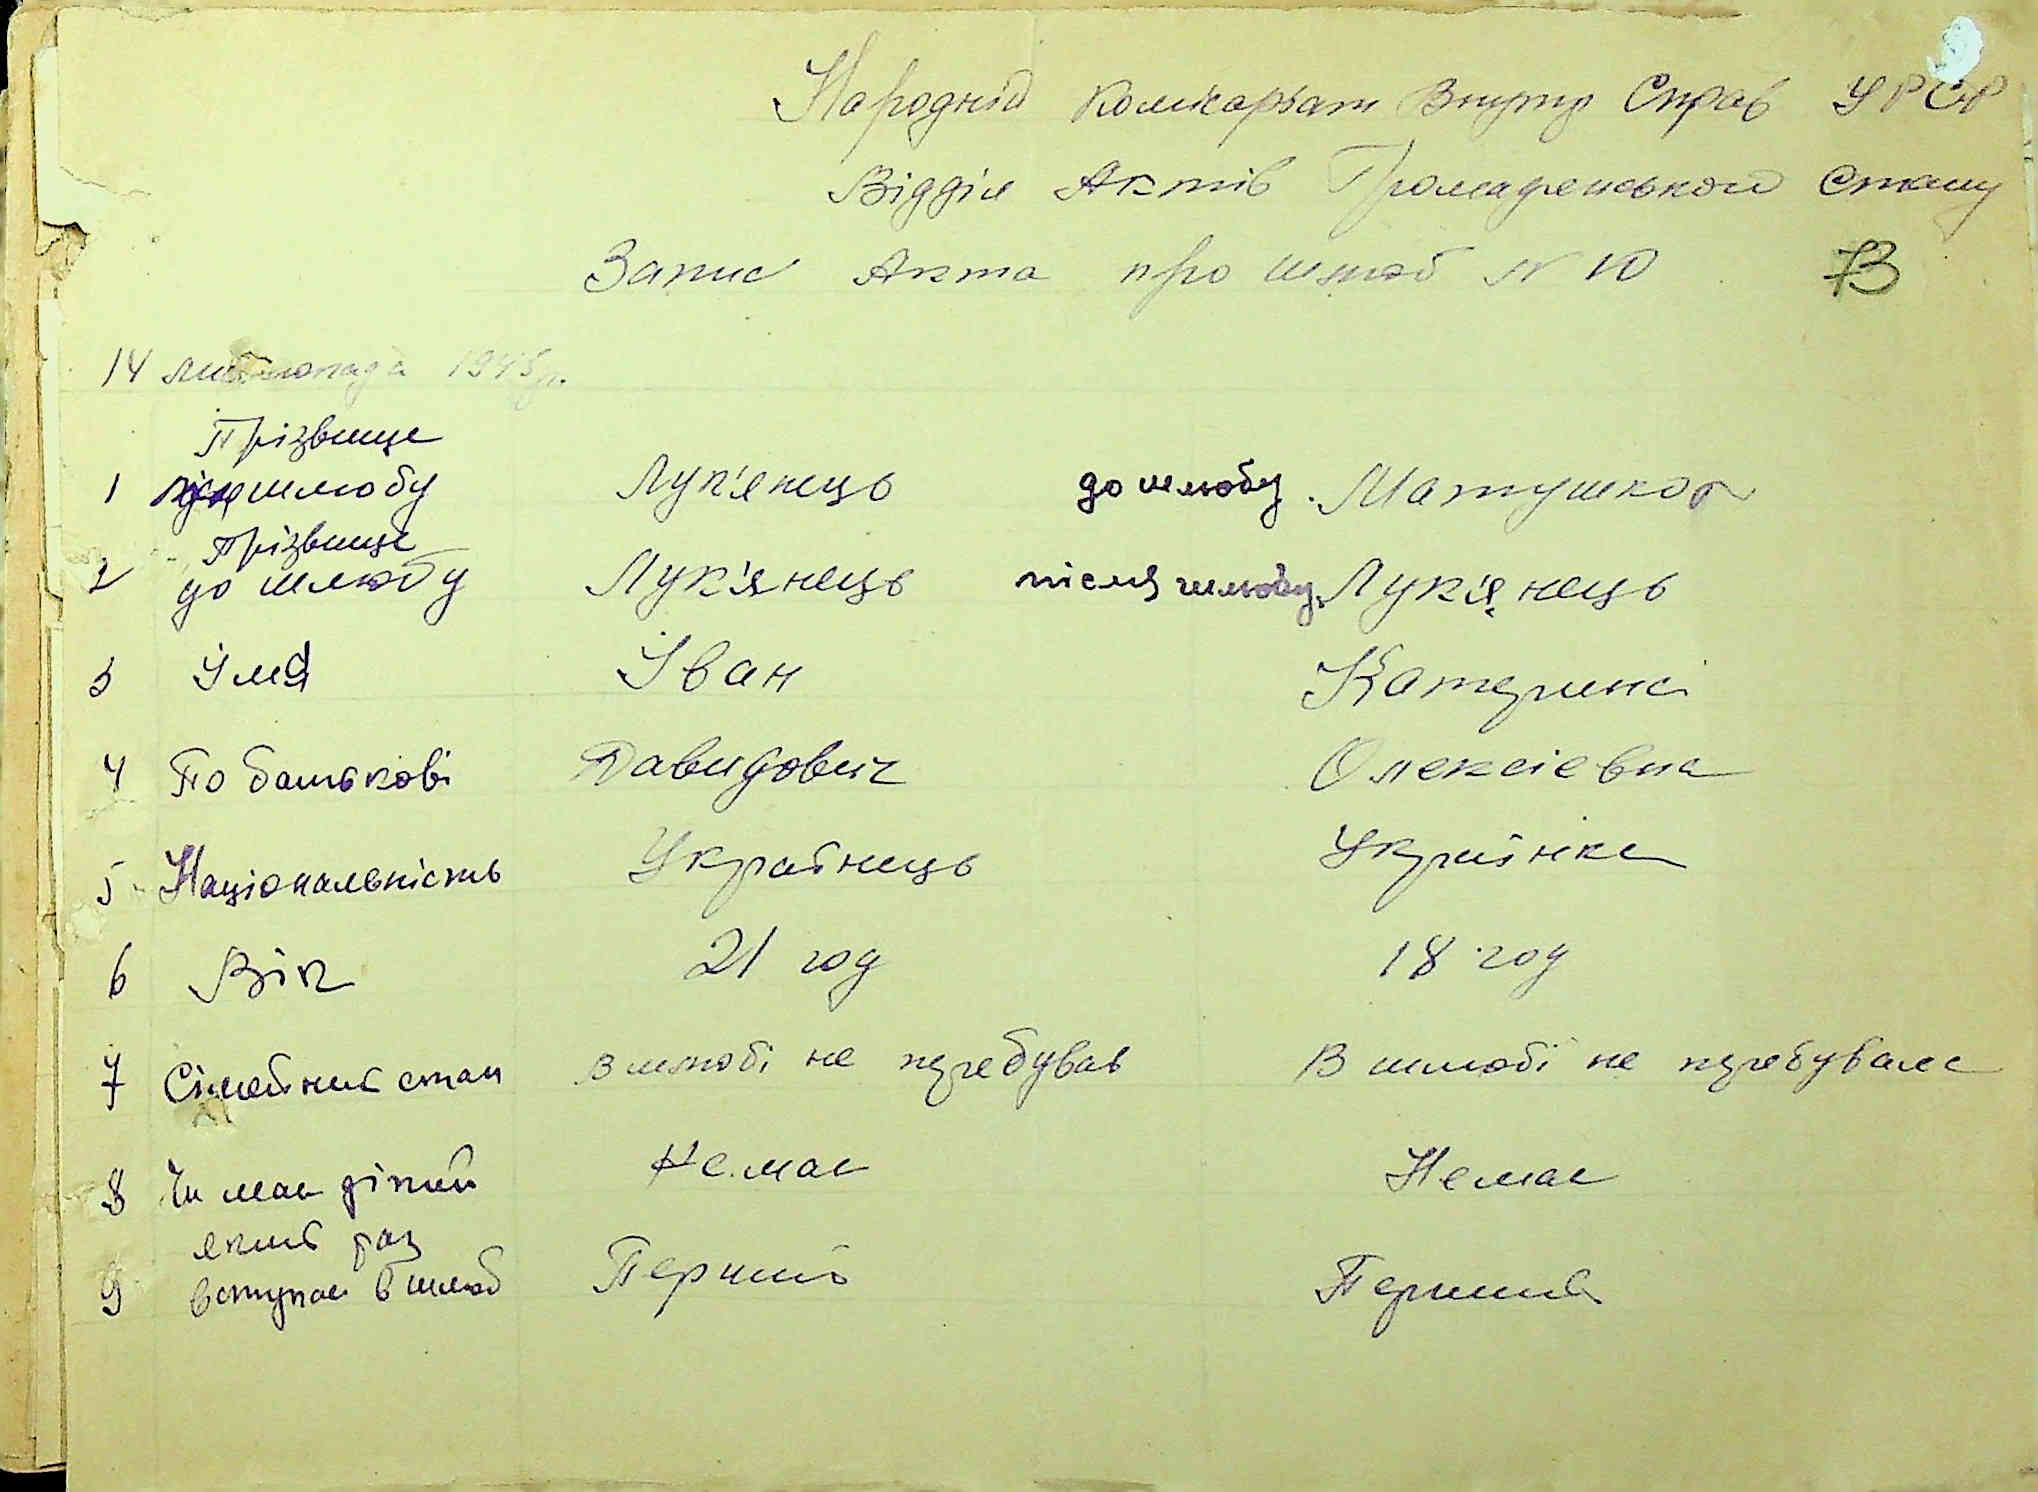 Народній Комісаріат Внутр Справ УРСР
Відділ Актів Громадянського Стану
Запис Акта про шлюб N 10
73
14 листопада 1945 р.
Прізвище
1 шлюбу Лук'янець до шлюбу Матушкот
Прізвище
2 до шлюбу Лук'янець після шлюбу Лук'янець
3 Імя Іван Катерина
4 По батькові Давидович Олексієвна
5 Національність Українець Українка
6 Вік 21 год 18 год
7 Сімейний стан В шлюбі не перебував В шлюбі не перебувала
8 Чи має дітий Немає Немає
який раз
9 вступає в шлюб Перший Перший